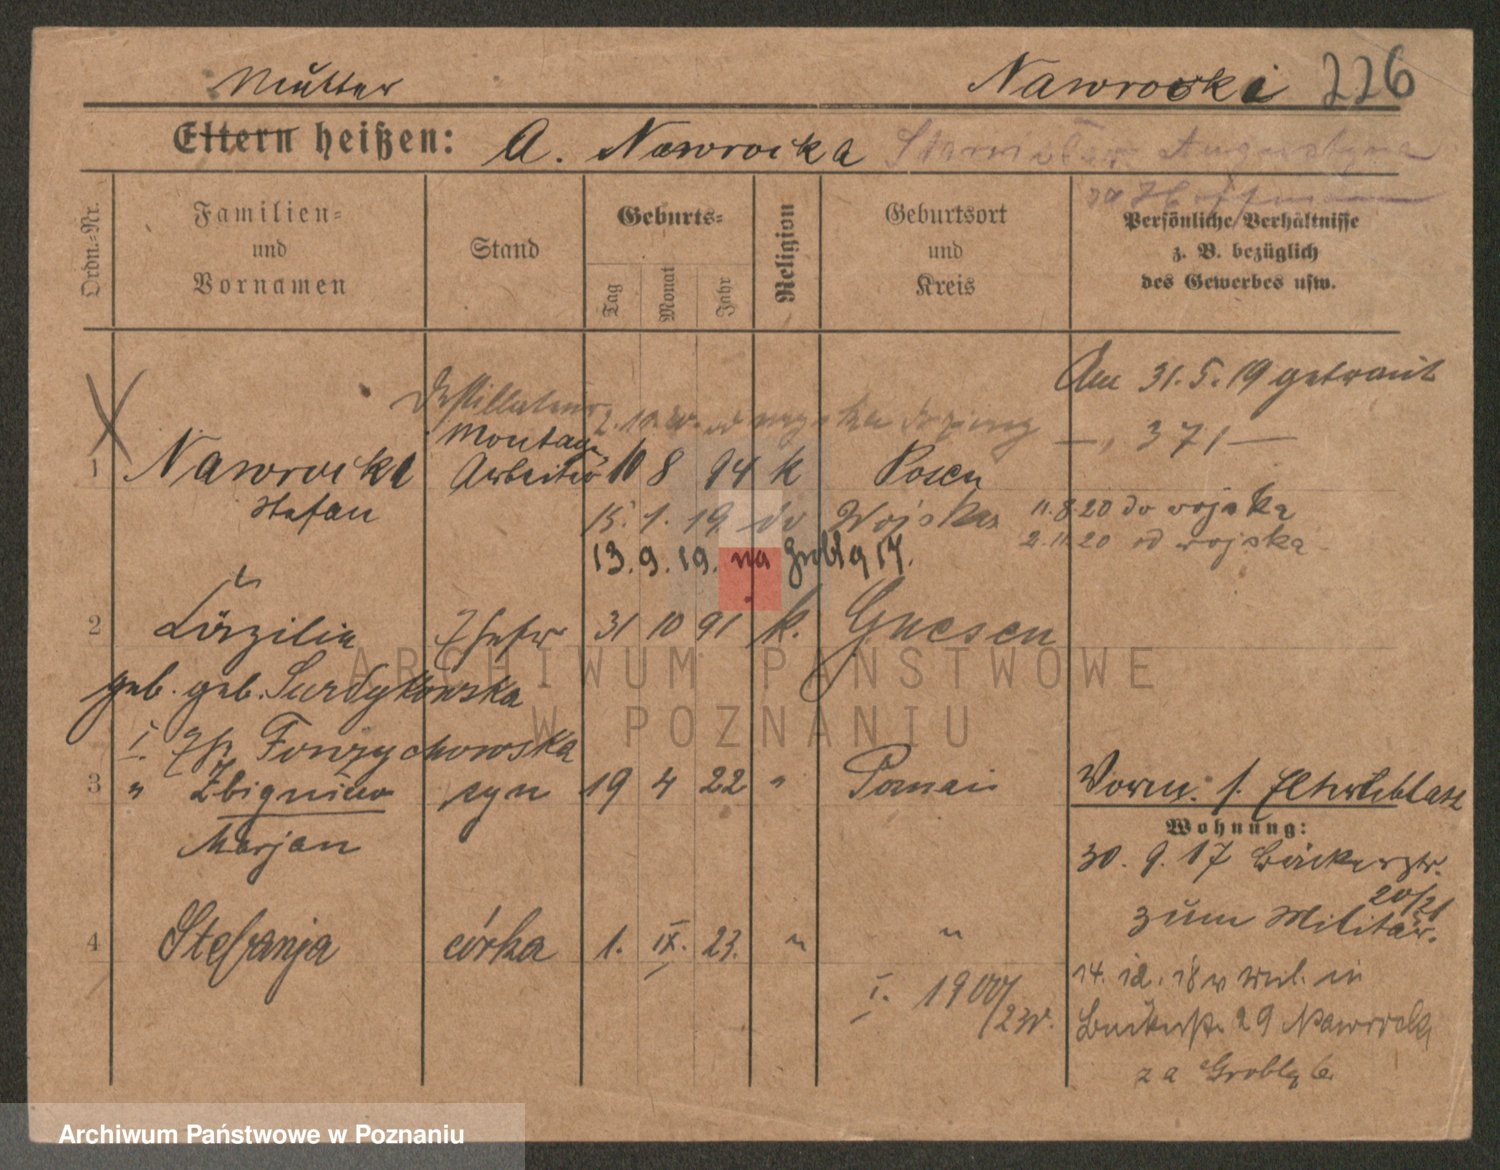 Mutter
Nawrocki 226
Eltern heißen: A. Nawrocka Stanisław Augustyna
Ordn.-Nr.
Familien- und Vornamen
Stand
Geburts-
Tag Monat Jahr
Religion
Geburtsort und Kreis
Persönliche Verhältnisse
z. B. bezüglich
des Gewerbes usw.
Am 31.5.19 getraut
— 371 —
Destillateur
Montag
1 Nawrocki Arbeiter 10 8 94 k Posen
Stefan
15. 1. 19. do Wojska 11.8.20 do wojska
2.11.20 od wojska
13. 9. 19. na Grobla 17.
2 Cäzilie Ehefr 31 10 91 k. Gnesen
geb. geb. Surdykowska
I.
3 " Zbigniew syn 19 4 22 " Poznań
Marjan
Vorm. s. Elternblatt
Wohnung:
30. 9. 17 Bäckerstr.
20/21
zum Militär.
4 Stefanja córka 1. IX. 23. " "
I. 1900/23r.
14. 12. 18 v Mil. in
Bäckerstr. 29 Nawrocka
za Grobla 6
ARCHIWUM PAŃSTWOWE
W POZNANIU
Archiwum Państwowe w Poznaniu